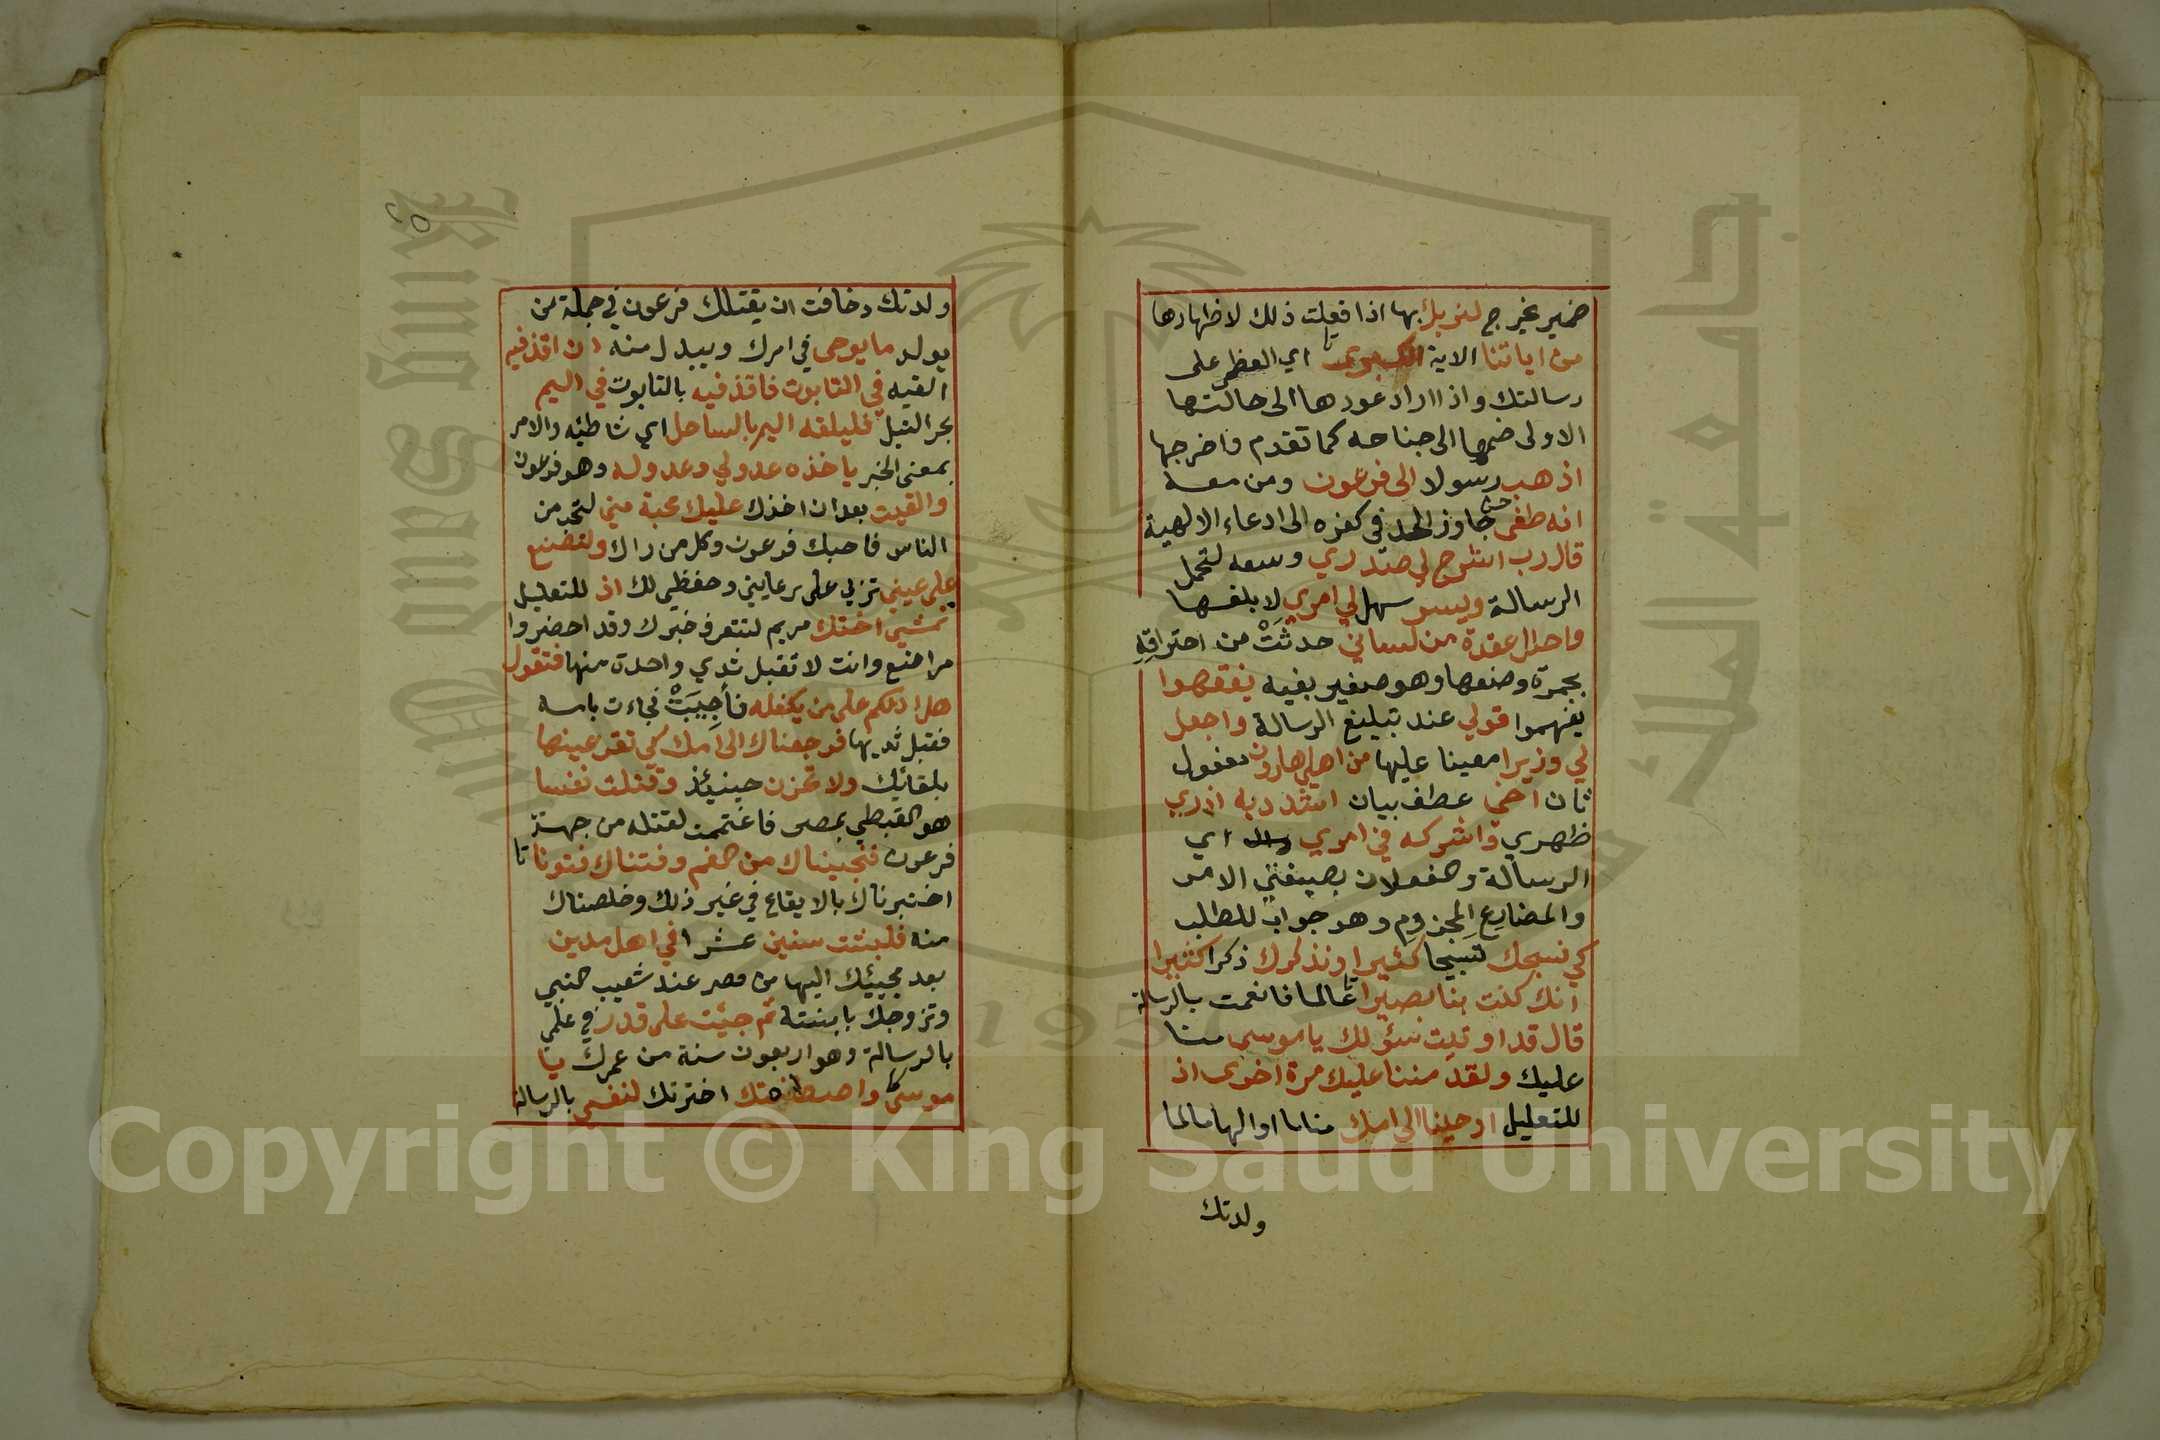 ضمير تخرج لنريك بها اذا فعلت ذلك لاظهارها
من اياتنا الاية الكبرى اي العظمى على
رسالتك واذا اراد عودها الى حالتها
الاولى ضمها الى جناحه كما تقدم واخرجها
اذهب رسولا الى فرعون ومن معه
انه طغى جاوز الحد في كفره الى ادعاء الالهية
قال رب اشرح لي صدري وسعه لتحمل
الرسالة ويسر سهل لي امري لابلغها
واحلل عقدة من لساني حدثت من احتراقه
بجمرة وضعها وهو صغير بفيه يفقهوا
يفهموا قولي عند تبليغ الرسالة واجعل
لي وزيرا معينا عليها من اهلي هارون مفعول
ثان اخي عطف بيان اشدد به ازري
ظهري واشركه في امري اي
الرسالة والفعلان بصيغتي الامر
والمضارع المجزوم وهو جواب للطلب
كي نسبحك تسبيحا كثيرا ونذكرك ذكرا كثيرا
انك كنت بنا بصيرا عالما فانعمت بالرسالة
قال قد اوتيت سؤلك يا موسى منا
عليك ولقد مننا عليك مرة اخرى اذ
للتعليل اوحينا الى امك مناما او الهاما لما
ولدتك
٢٥
ولدتك وخافت ان يقتلك فرعون في جملة من
يولد ما يوحى في امرك ويبدل منه ان اقذفيه
القيه في التابوت فاقذفيه بالتابوت في اليم
بحر النيل فليلقه اليم بالساحل اي شاطئه والامر
بمعنى الخبر ياخذه عدو لي وعدو له وهو فرعون
والقيت بعد ان اخذك عليك محبة مني لتحب من
الناس فاحبك فرعون وكل من راك ولتصنع
على عيني تربى على رعايتي وحفظي لك اذ للتعليل
تمشي اختك مريم لتتعرف خبرك وقد احضروا
مراضع وانت لا تقبل ثدي واحدة منها فتقول
هل ادلكم على من يكفله فأجيبت فجاءت بامه
فقبل ثديها فرجعناك الى امك كي تقر عينها
بلقائك ولا تحزن حينئذ وقتلت نفسا
هو القبطي بمصر فاغتممت لقتله من جهة
فرعون فنجيناك من الغم وفتناك فتونا
اختبرناك بالايقاع في غير ذلك وخلصناك
منه فلبثت سنين عشرا في اهل مدين
بعد مجيئك اليها من مصر عند شعيب النبي
وتزوجك بابنته ثم جئت على قدر في علمي
بالرسالة وهو اربعون سنة من عمرك يا
موسى واصطنعتك اخترتك لنفسي بالرسالة
Copyright © King Saud University
King Saud University
جامعة الملك سعود
1957